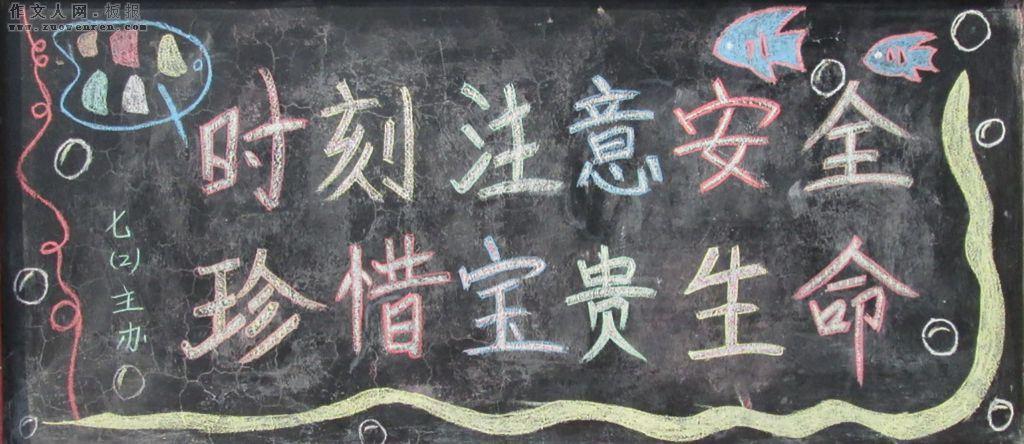 作文人网.板报
www.zuowenren.com
时刻注意安全
珍惜宝贵生命
七(2)主办